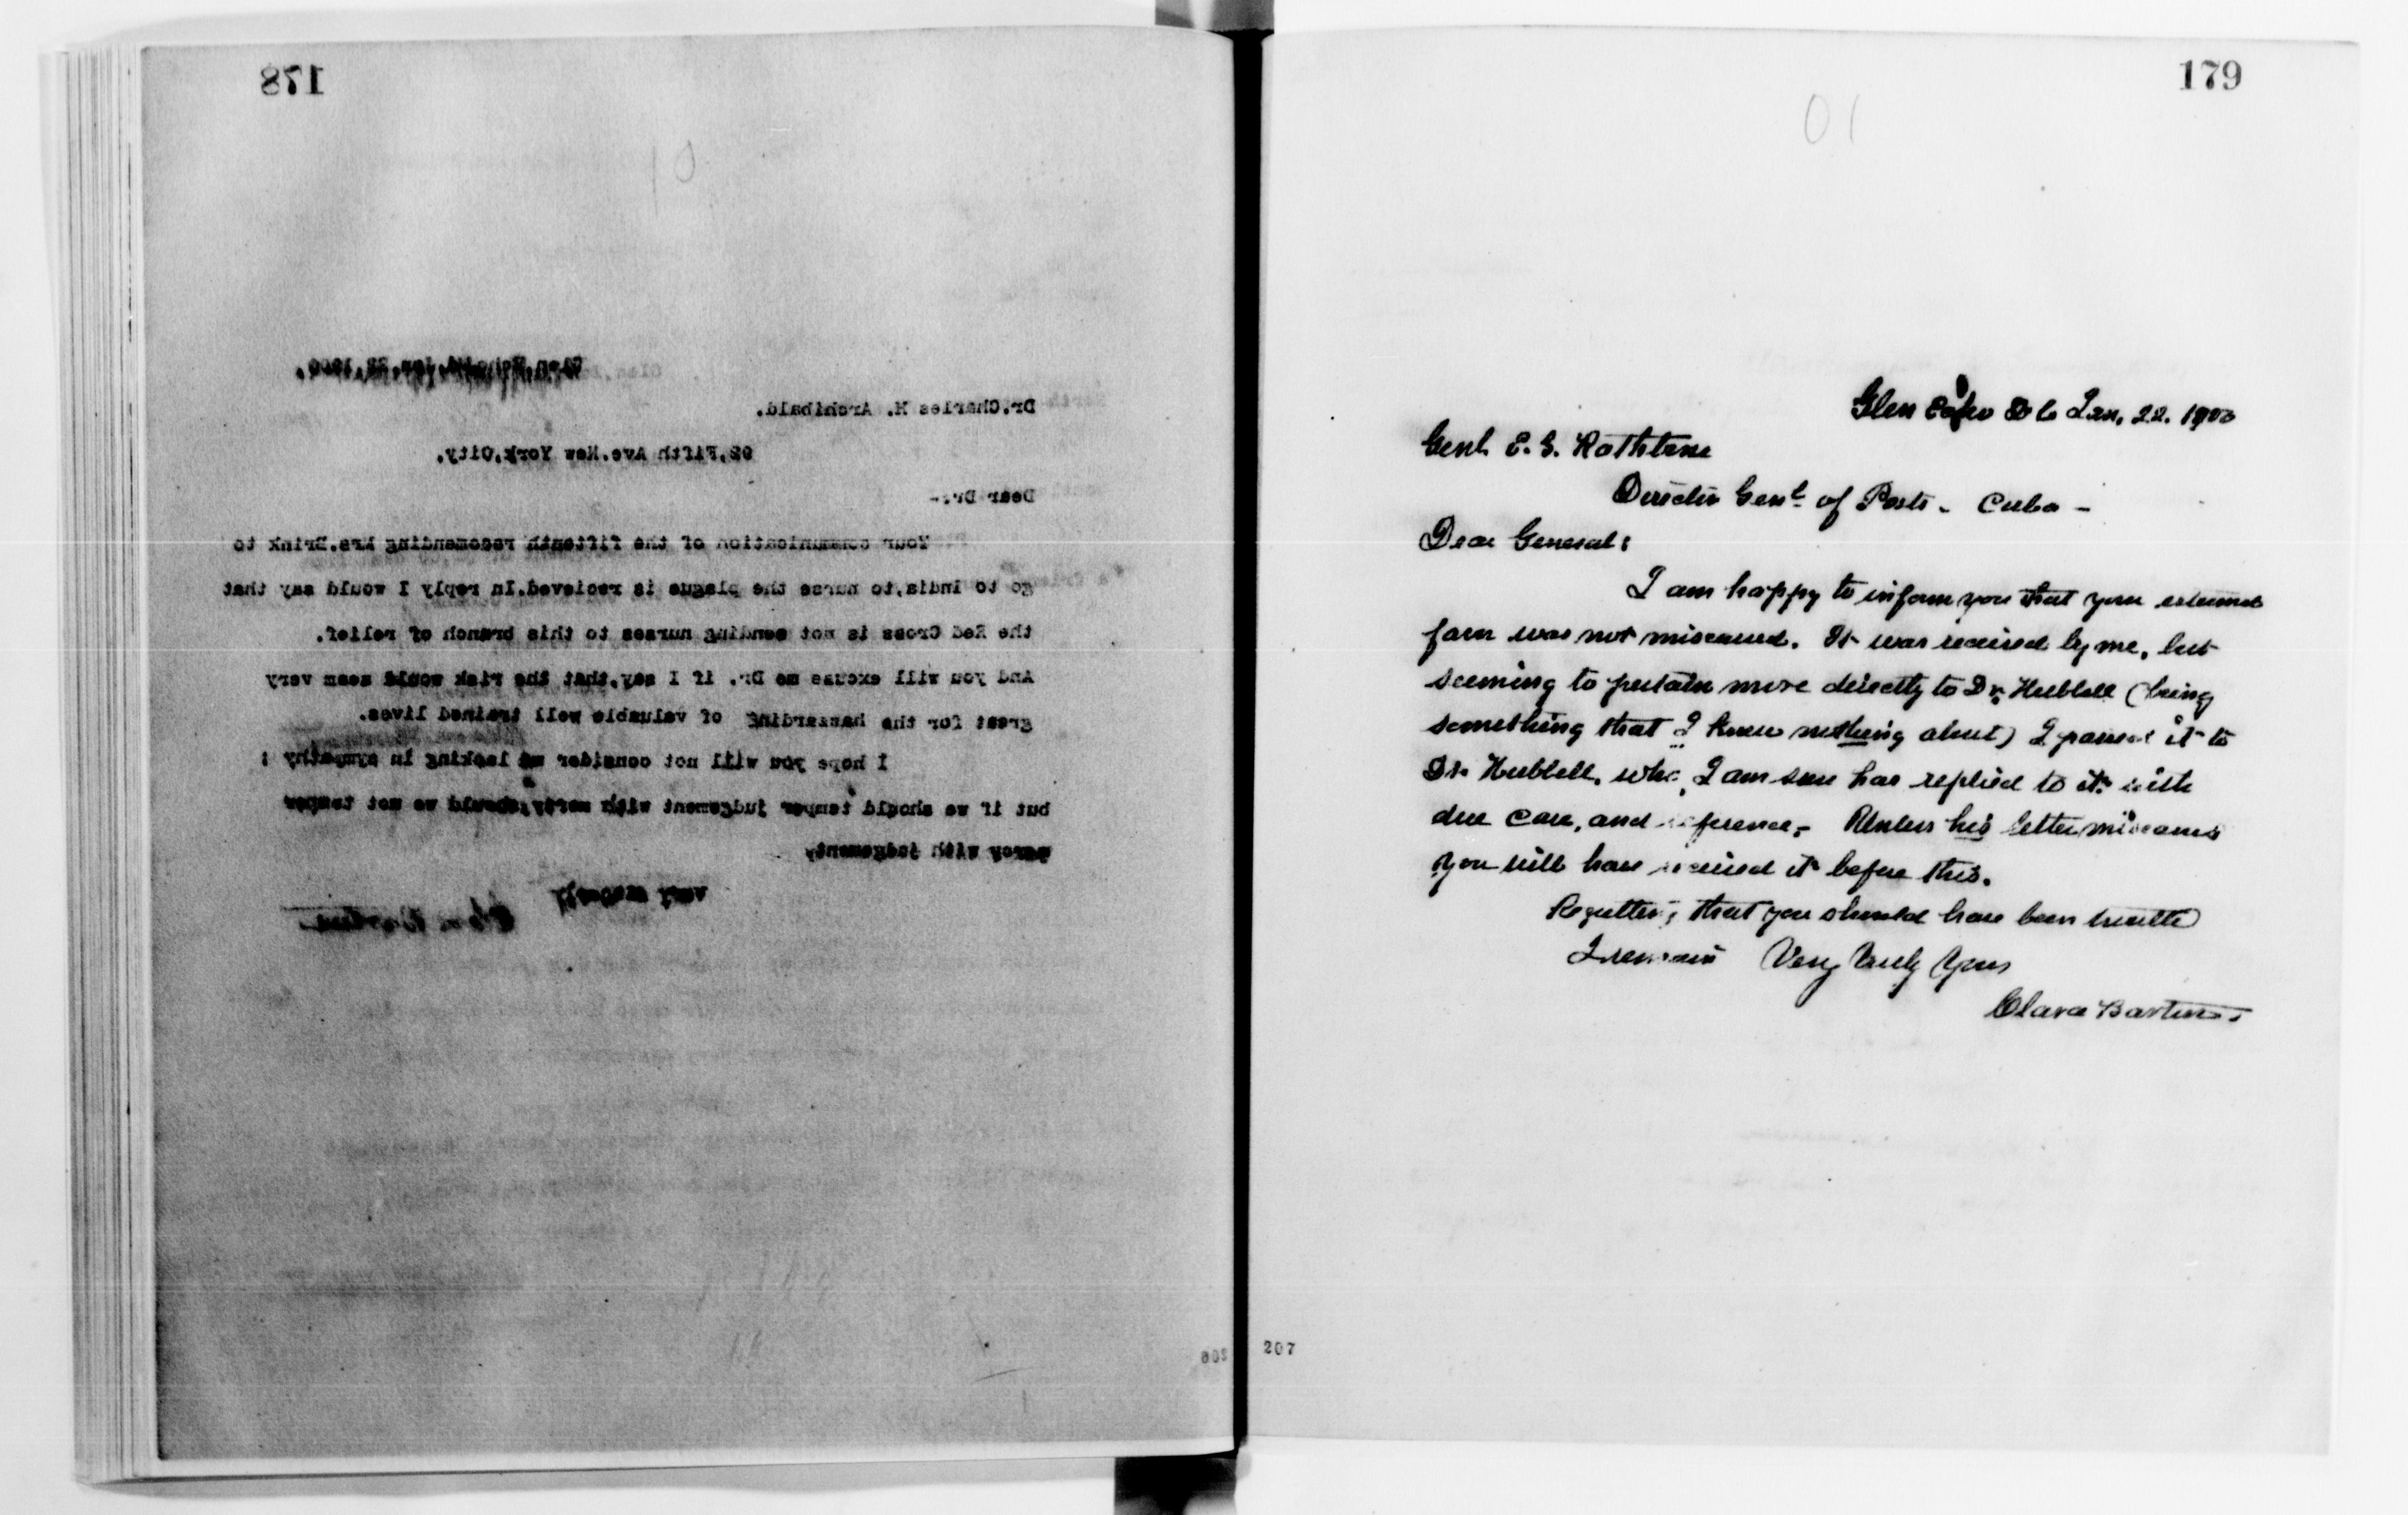 178
Glen, Echo, Md, Jan, 22, 1900,
Dr.Charles M. Archibald.
92,Fifth Ave.New York,City.
Dear Dr:-
Your communication of the fifteenth recomending Mrs.Brink to
go to India,to nurse the plague is recieved.In reply I would say that
the Red Cross is not sending nurses to this branch of relief.
And you will excuse me Dr. if I say,that the risk would seem very
great for the hazzarding of valuable well trained lives.
I hope you will not consider us lacking in sympathy ;
but if we should temper judgement with mercy,should we not temper
mercy with judgement,
very
Clara Barton
206
179
01
Glen Echo Jan, 22. 1900
Genl. E. G. Rathbone
Director Genl. of Posts - Cuba -
Dear General:
I am happy to inform you that your esteemed
favor was not miscarried. It was received by me, but
seeming to pertain more directly to Dr. Hubbell (being
something that I knew nothing about) I passed it to
Dr. Hubbell, who, I am sure has replied to it with
due care, and deference. - Unless his letter miscarries
you will have received it before this.
Regretting that you should have been troubled
I remain Very Truly Yours
Clara Barton
207